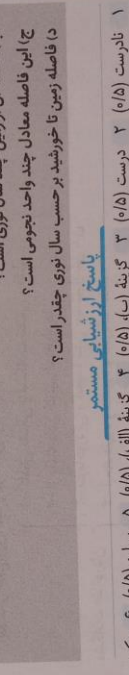 ج) این فاصله معادل چند واحد نجومی است؟
د) فاصله زمین تا خورشید بر حسب سال نوری چقدر است؟
پاسخ ارزشیابی مستمر
۱ نادرست (۰/۵) ۲ درست (۰/۵) ۳ گزینهٔ (ب)، (۰/۵) ۴ گزینهٔ (الف)، (۰/۵) ۵